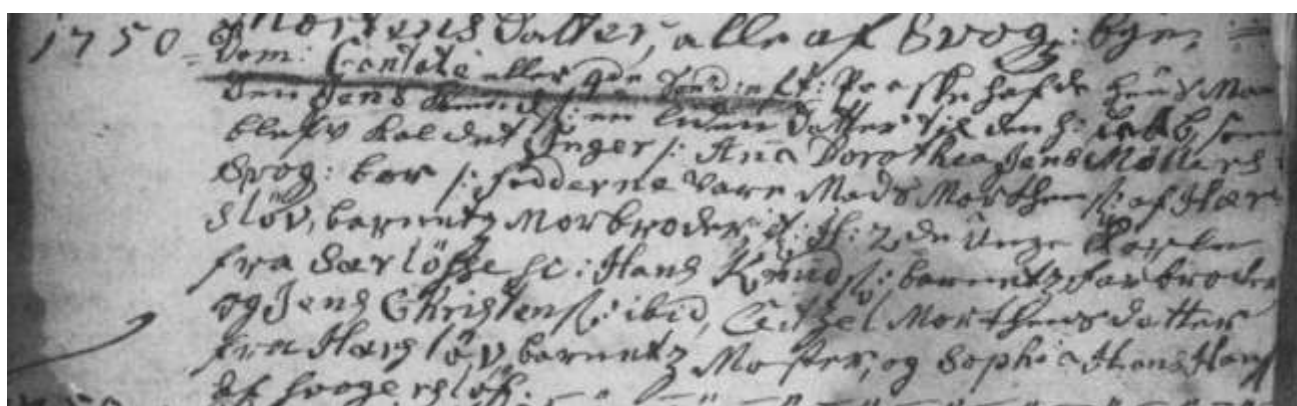 1750 Mortens Datter, alle af Svog: bye,
Dom: Cantate eller 4de Sønd: eft: Paaske hafde
Jens Knuds: en liden Datter til den H: Daab, som
blefv kaldet Inger /: Ana Dorothea Jens Møllers
Svog: bar /: Fadderne vare Mads Morthens: af Har-
sløv, barnetz Morbroder, it: 2de Unge Karle
fra Særløsse sc: Hans Knuds: barnetz farbroder
og Jens Christens: ibid, Citzel Morthensdatter
fra Harsløv barnetz Moster, og Sophia Hans
af Svogerslöf.